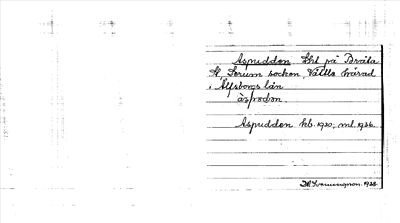 Aspudden Lht på Bräla
St, Lerum socken, Vättle härad
i Älfsborgs län
àspodən.
Aspudden kb. 1920; ml. 1926.
1928